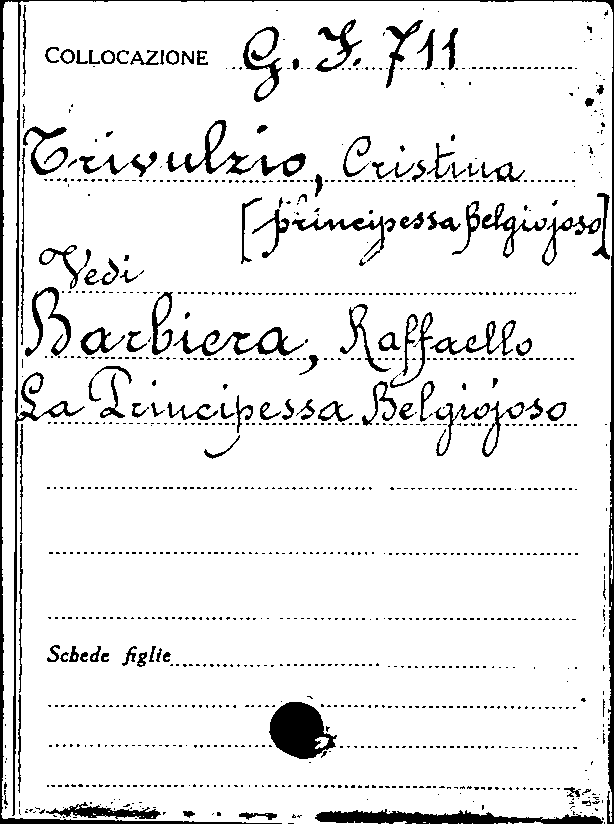 COLLOCAZIONE G. I. 711
Trivulzio, Cristina
[principessa Belgiojoso]
Vedi
Barbiera, Raffaello
La Principessa Belgiojoso
Schede figlie